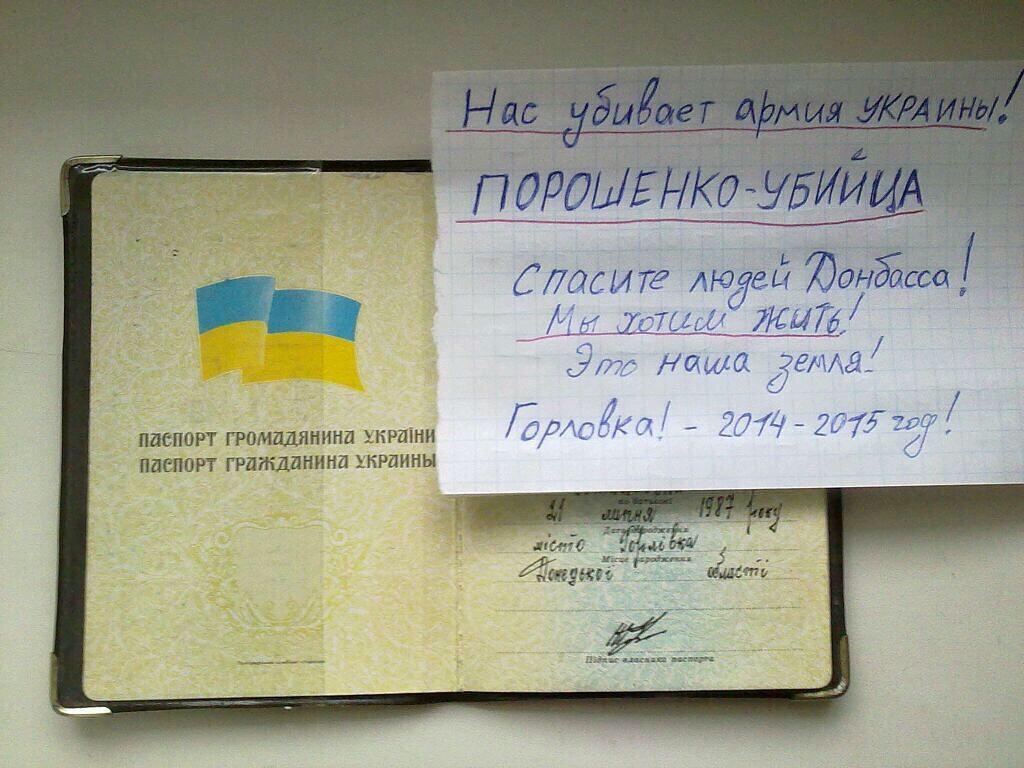 Нас убивает армия УКРАИНЫ!
ПОРОШЕНКО-УБИЙЦА
Спасите людей Донбасса!
Мы хотим жить!
Это наша земля!
Горловка! - 2014-2015 год!
ПАСПОРТ ГРОМАДЯНИНА УКРАЇНИ
ПАСПОРТ ГРАЖДАНИНА УКРАИНЫ
по батькові
21 липня 1987 року
Дата народження
місто Горлівка
Місце народження
Донецької області
Підпис власника паспорта